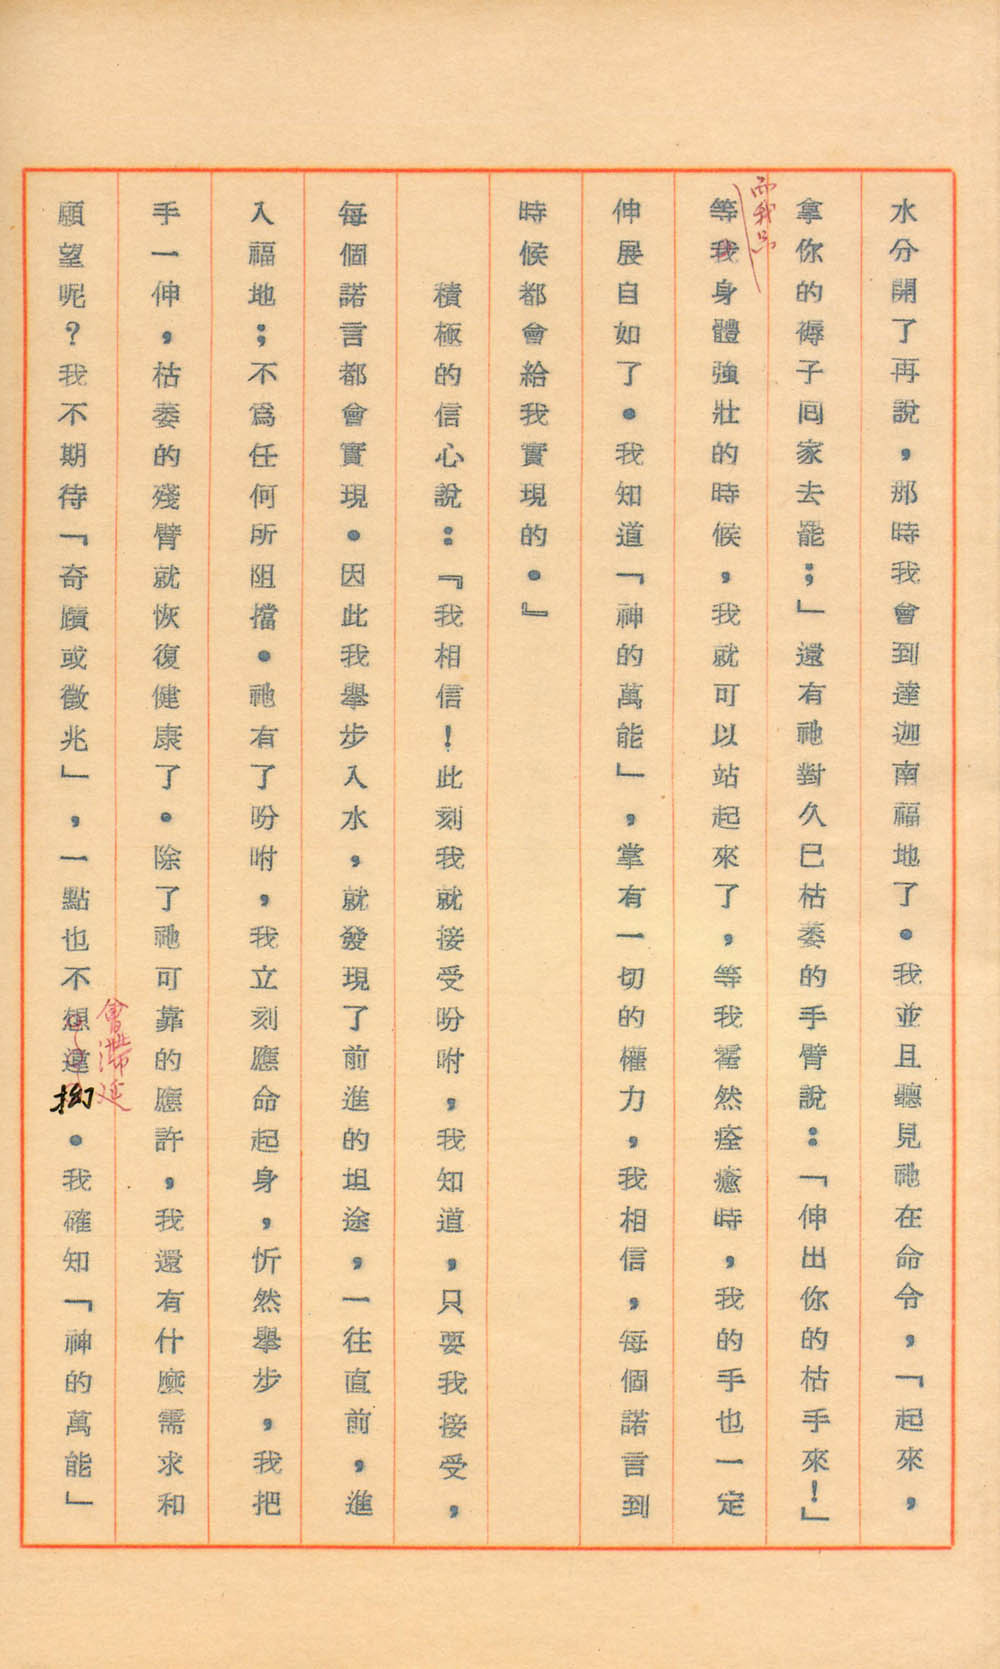 水分開了再說，那時我會到達迦南福地了。我並且聽見祂在命令，「起來，
拿你的褥子回家去罷；」還有祂對久已枯萎的手臂說：「伸出你的枯手來！」
而我只
等我身體強壯的時候，我就可以站起來了，等我霍然痊癒時，我的手也一定
伸展自如了。我知道「神的萬能」，掌有一切的權力，我相信，每個諾言到
時候都會給我實現的。』
積極的信心說：『我相信！此刻我就接受吩咐，我知道，只要我接受，
每個諾言都會實現。因此我舉步入水，就發現了前進的坦途，一往直前，進
入福地；不爲任何所阻擋。祂有了吩咐，我立刻應命起身，忻然舉步，我把
手一伸，枯萎的殘臂就恢復健康了。除了祂可靠的應許，我還有什麼需求和
會滯延
願望呢？我不期待「奇蹟或徵兆」，一點也不想違拗。我確知「神的萬能」